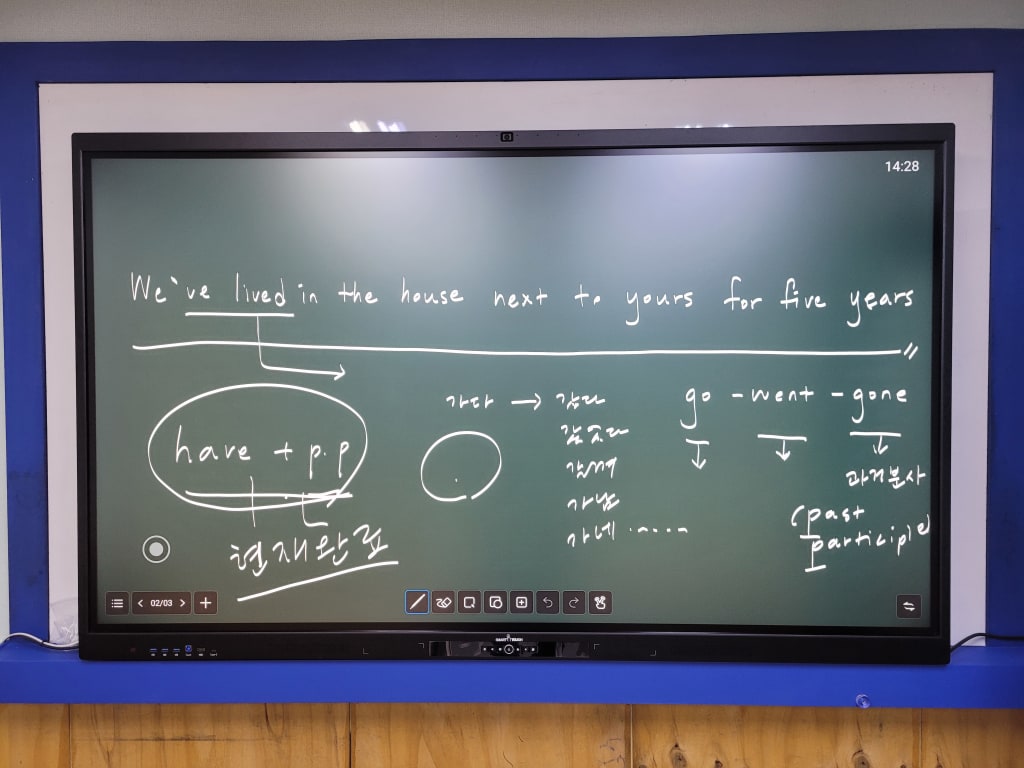 14:28
We've lived in the house next to yours for five years
have + p.p
현재완료
가다 → 갔다
갔네
가네 ·····
go - went - gone
과거분사
(past
participle)
02/03